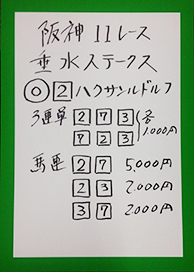 阪神 11レース
垂水ステークス
◎ 2 ハクサンルドルフ
3連単 2 7 3 各
7 2 3 1,000円
馬連 2 7 5,000円
2 3 2,000円
3 7 2,000円